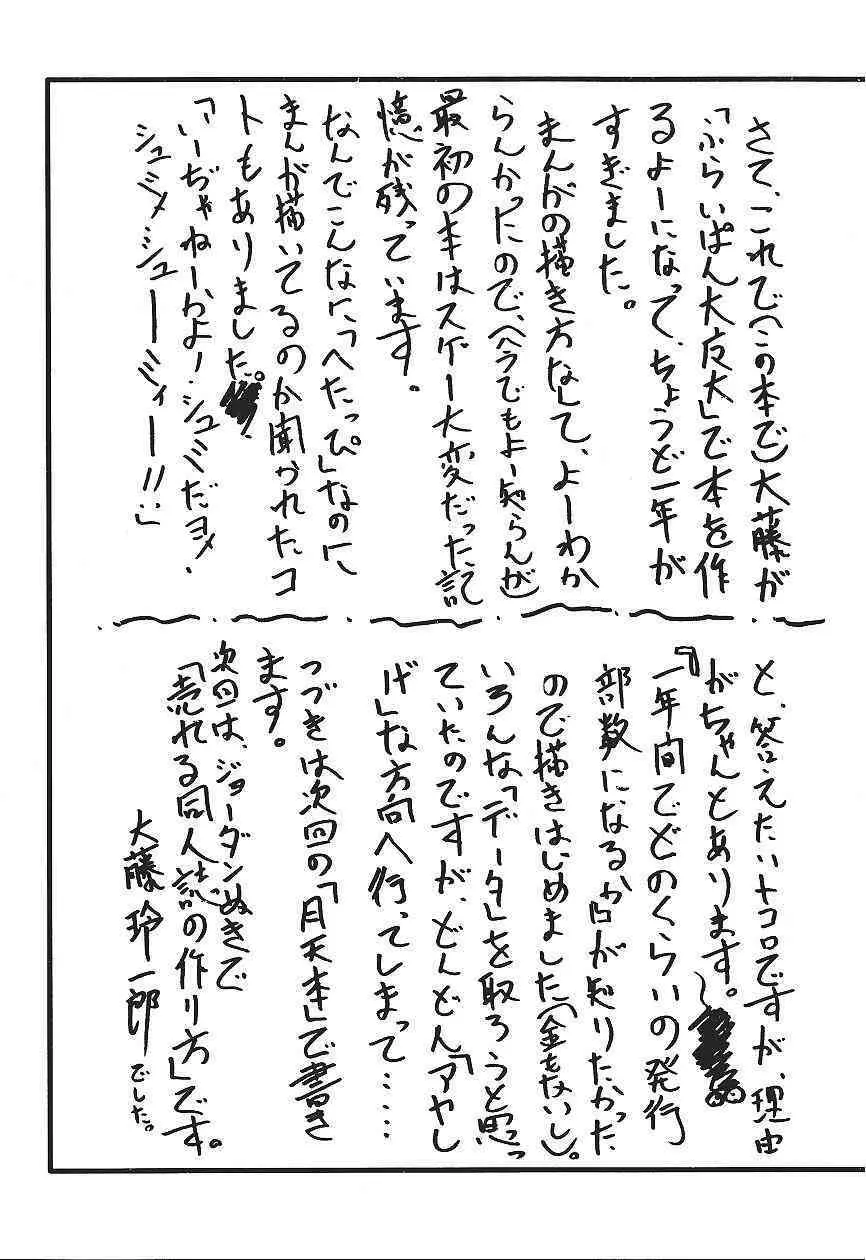 さて、これで(この本で)大藤が
「ふらいぱん大友大」で本を作
るよーになって、ちょうど一年が
すぎました。
まんがの描き方なして、よーわか
らんかったので、(今でもよー知らんが)
最初の本はスゲー大変だった記
憶が残っています。
なんでこんなに「へたっぴ」なのに
まんが描いてるのか聞かれたコ
トもありました。
「いーぢゃねーかよー・シュミだヨ・
シュミ・シューミィー!!」
と、答えたいトコロですが、理由
がちゃんとあります。
『一年間でどのくらいの発行
部数になるか』が知りたかった
ので描きはじめました(金もないし)。
いろんな「データ」を取ろうと思っ
ていたのですが、どんどん「アヤし
げ」な方向へ行ってしまって……
つづきは次回の「月天本」で書き
ます。
次回は、ジョーダンぬきで
「売れる同人誌の作り方」です。
大藤玲一郎でした。